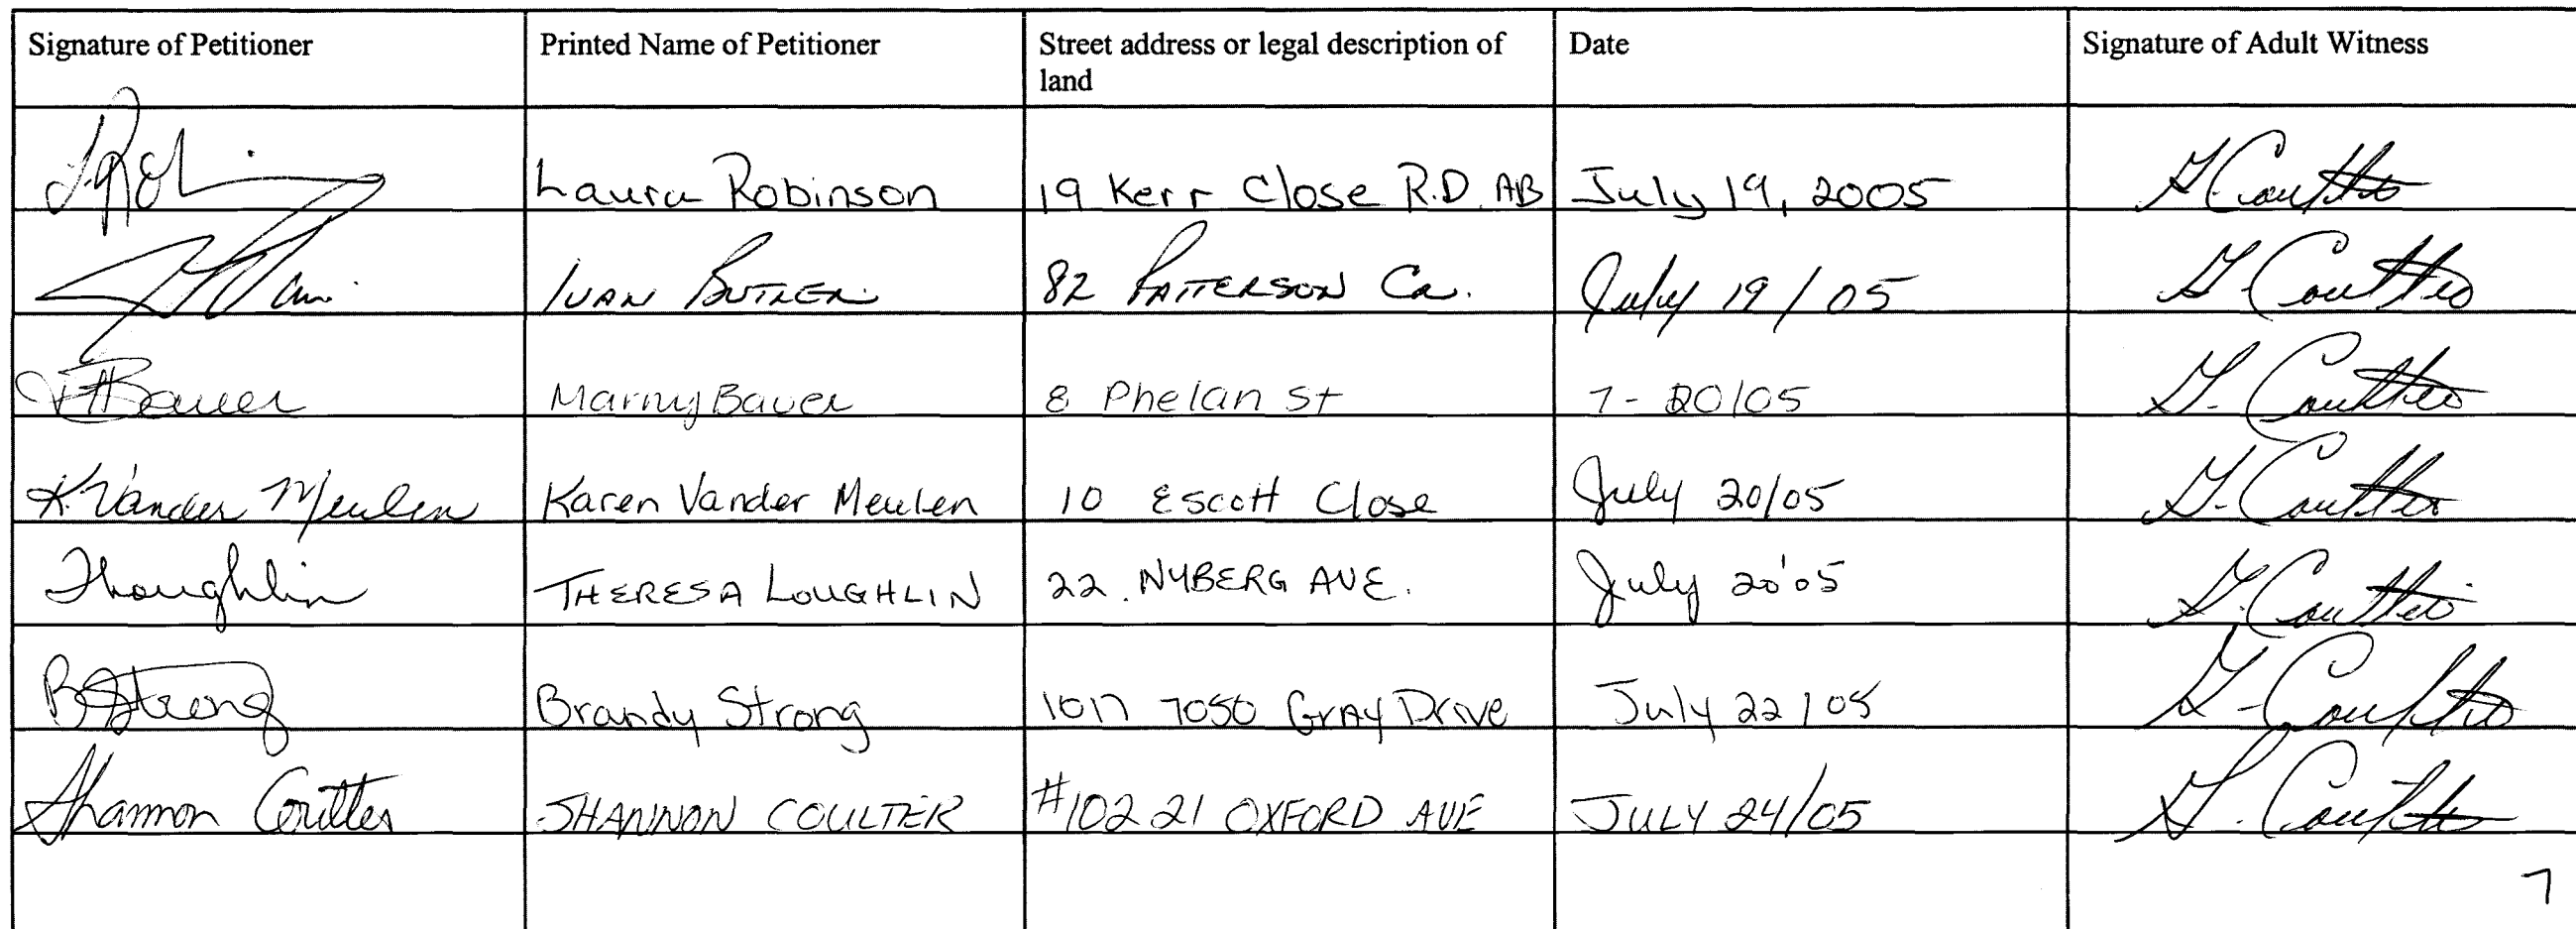 Signature of Petitioner Printed Name of Petitioner Street address or legal description of land Date Signature of Adult Witness
Laura Robinson 19 Kerr Close R.D. AB July 19, 2005
IVAN BUTLER 82 PATTERSON Cr. July 19/05
Bauer Marny Bauer 8 Phelan St 7-20/05
K. Vander Meulen Karen Vander Meulen 10 Escott Close July 20/05
TLoughlin THERESA LOUGHLIN 22. NYBERG AVE. July 20'05
BStrong Brandy Strong 1017 7050 Gray Drive July 22/05
Shannon Coulter SHANNON COULTER #102 21 OXFORD AVE JULY 24/05
7